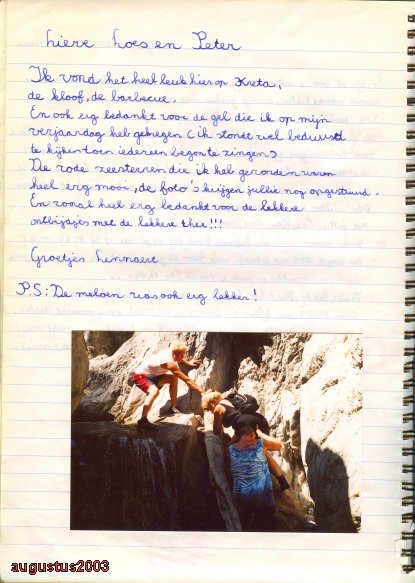 hiere hoes en Peter
Ik vond het heel leuk hier op Kreta,
de kloof, de barbecue.
En ook erg bedankt voor de gel die ik op mijn
verjaardag heb gekregen (ik stondt wel beduusd
te kijken toen iedereen begon te zingen)
De rode zeesterren die ik heb gevonden waren
heel erg mooi, de foto's krijgen jullie nog opgestuurd.
En vooral heel erg bedankt voor de lekkere
ontbijdsjes met de lekkere thee!!!
Groetjes Lennaert
P.S: De meloen was ook erg lekker!
augustus2003